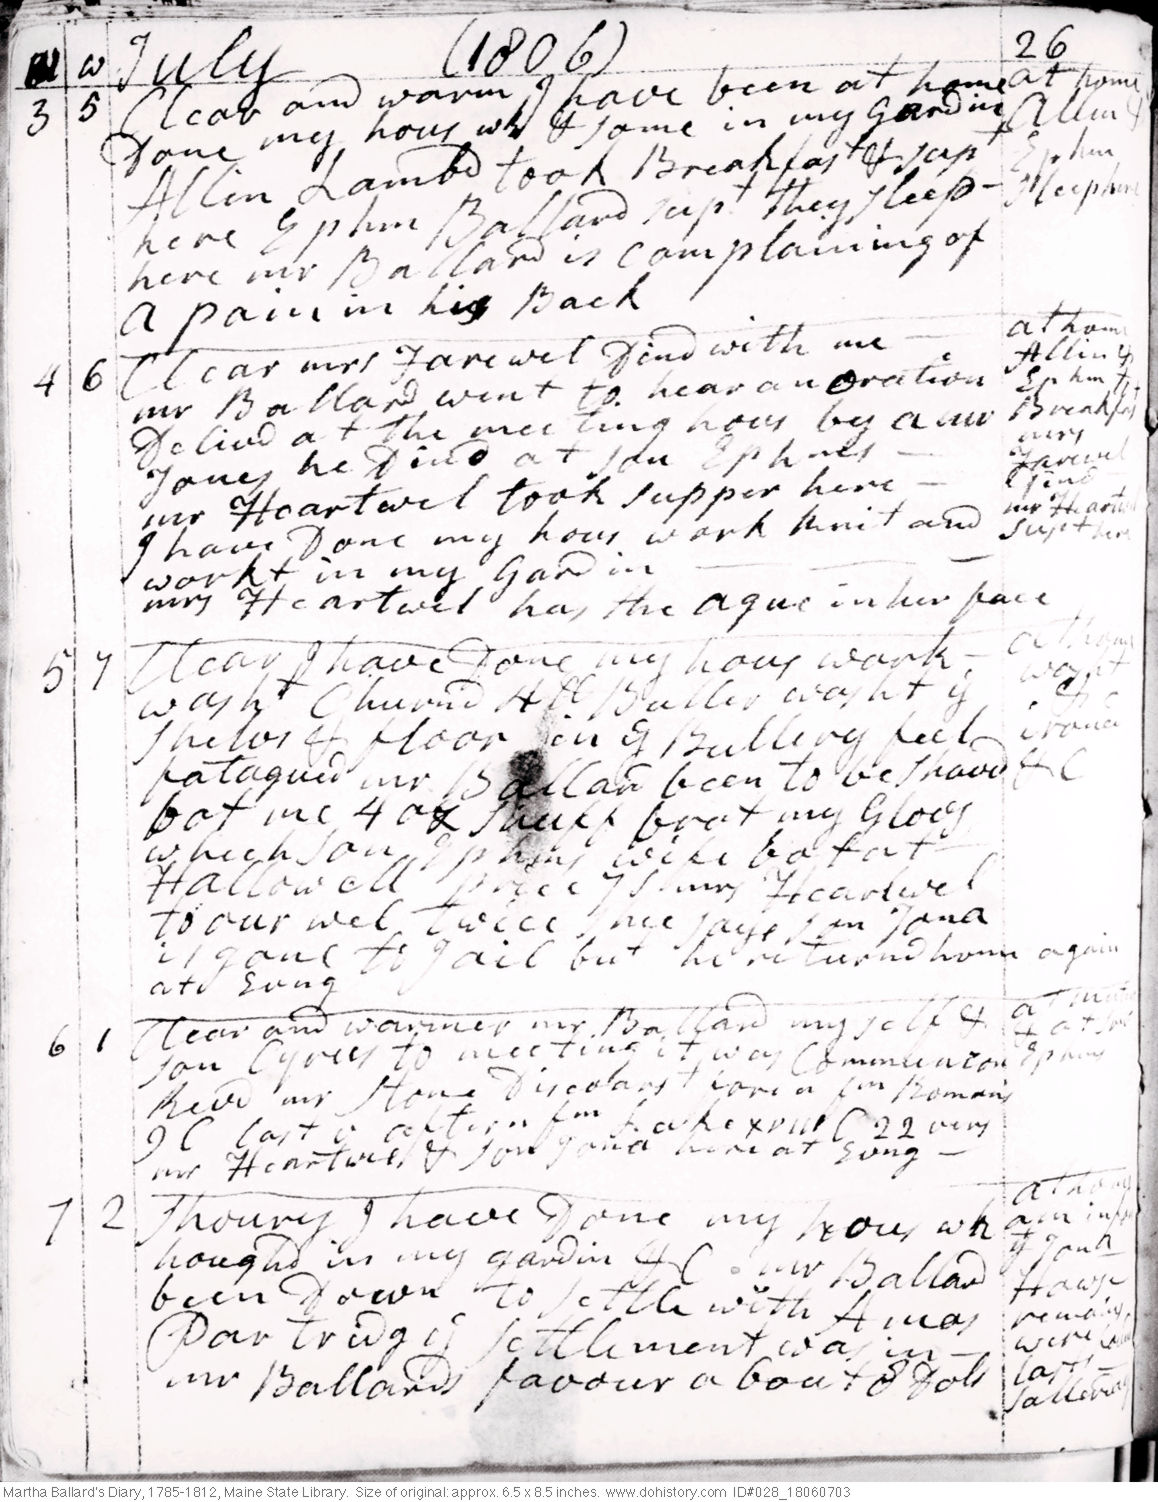 m w July (1806) 26
3 5 Clear and warm I have been at home
Done my hous wk & some in my Gardin
Allin Lambd took Breakfast & sup't
here Ephm Ballard sup't they sleep
here mr Ballard is complaining of
a pain in his Back
at home
Allin &
Ephm
sleep here
4 6 Clear mrs Farewel Dind with me
mr Ballard went to hear an oration
Delivd at the meeting hous by a mr
Jones he Dind at son Ephms
mr Heartwel took supper here
I have Done my hous work knit and
workt in my Gardin
mrs Heartwel has the ague in her face
at home
Allin &
Ephm
Breakfast
mrs
Farewel
Dind
mr Heartwel
supt here
5 7 Clear I have Done my hous work
washt Churnd 4 lb Butter washt ye
shelvs & floor in ye Buttery feel
fatagued mr Ballard been to be shavd
bot me 4 oz snuff brot my Glovs
which son Ephms wife bot at
Hallowell price 7/ mrs Heartwel
to our wel twice shee says son Jona
is gone to Jail but he returnd home again
at Evng
at home
washt
& irond
&C
6 1 Clear and warmer mr Ballard my self &
son Cyrus to meeting it was Communion
Revd mr Stone Discoarst foren fm Romans
C last v aftern fm C 22 vers
mr Heartwel & son Jona here at Evng
at
& at son
Ephms
7 2 Shoury I have Done my hous wk
houghd in my gardin &C. mr Ballard
been Down to settle with Amos
Partridg ye settlement was in
mr Ballards favour about 8 Dols
at home
am
& Jona
Haws
remains
were
last
satterday
Martha Ballard's Diary, 1785-1812, Maine State Library. Size of original: approx. 6.5 x 8.5 inches. www.dohistory.com ID#028_18060703